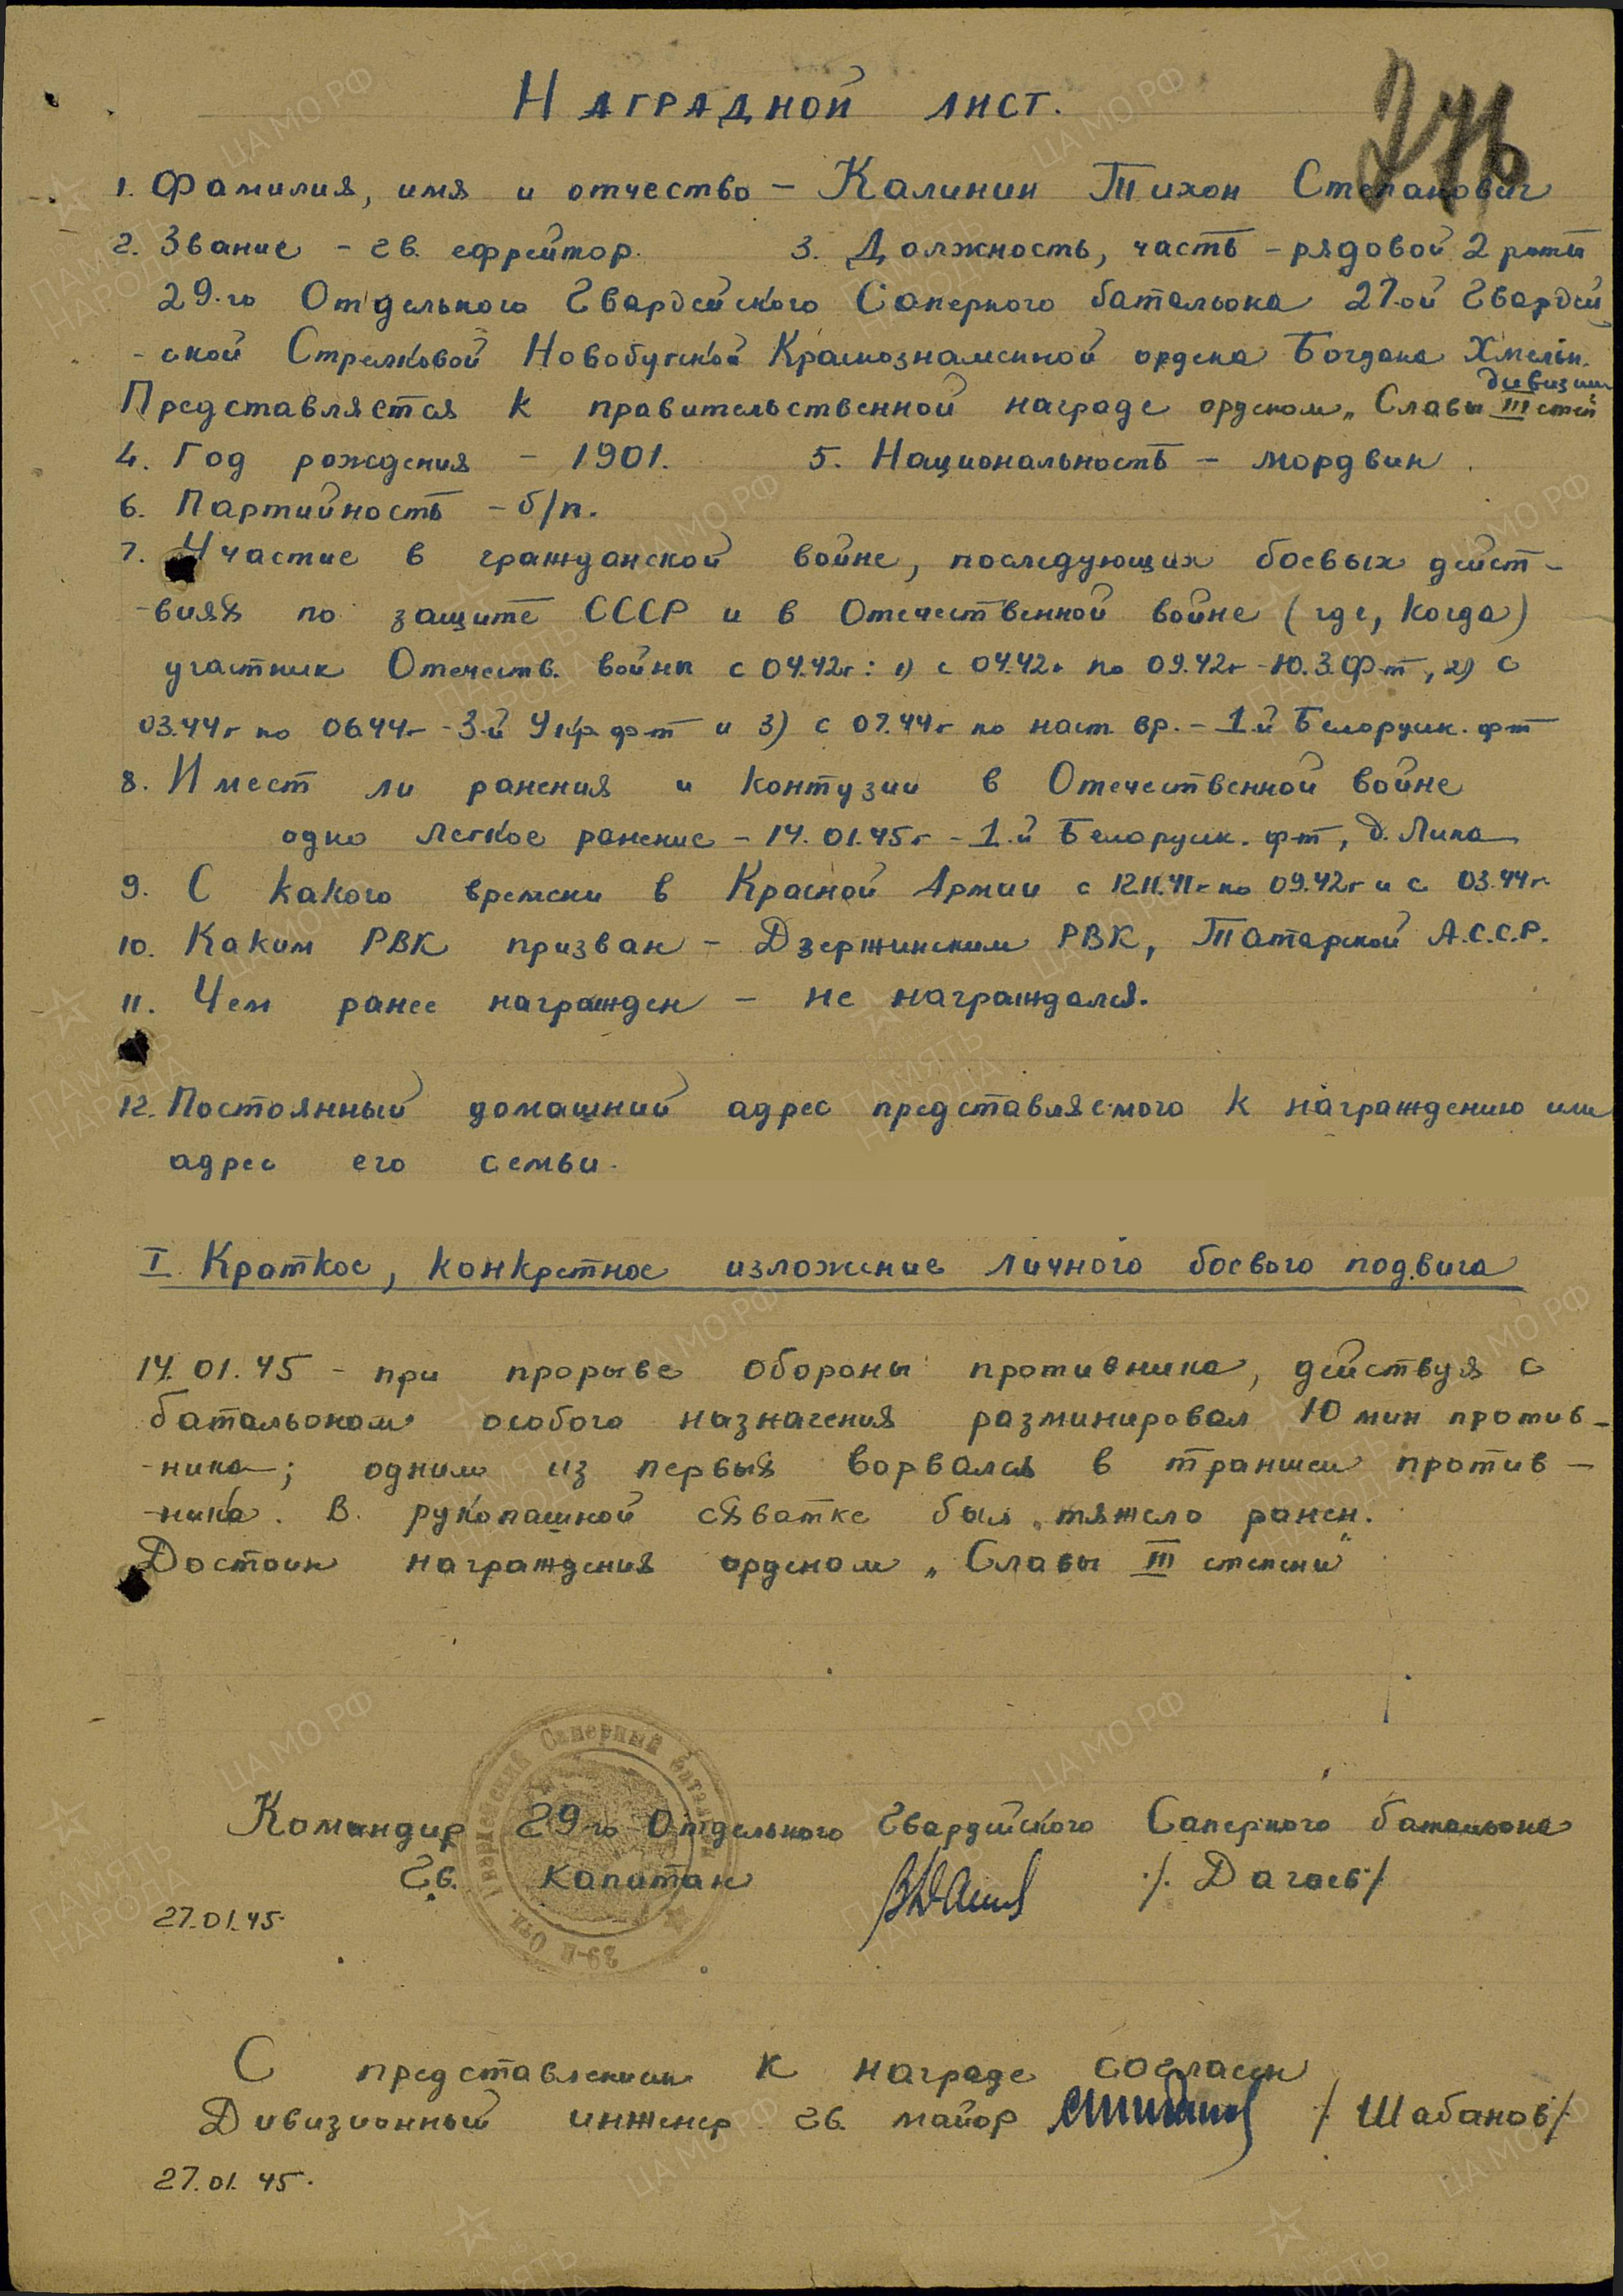 276
Наградной лист.
1. Фамилия, имя и отчество – Калинин Тихон Степанович
2. Звание – гв. ефрейтор. 3. Должность, часть – рядовой 2 роты
29-го Отдельного Гвардейского Саперного батальона 27-ой Гвардей
-ской Стрелковой Новобугской Краснознаменной ордена Богдана Хмельн.
дивизии
Представляется к правительственной награде орденом „Славы III степ"
4. Год рождения – 1901. 5. Национальность – мордвин.
6. Партийность – б/п.
7. Участие в гражданской войне, последующих боевых дейст-
-виях по защите СССР и в Отечественной войне (где, когда)
участник Отечеств. войны с 04.42г: 1) с 04.42г по 09.42г – Ю.З. Ф-т, 2) с
03.44г по 06.44г – 3-й Укр. ф-т и 3) с 07.44г по наст. вр. – 1-й Белорусск. ф-т
8. Имеет ли ранения и контузии в Отечественной войне
одно легкое ранение – 14.01.45г – 1-й Белорусск. ф-т, д. Липа
9. С какого времени в Красной Армии с 12.11.41г по 09.42г и с 03.44г
10. Каким РВК призван – Дзержинским РВК, Татарской А.С.С.Р.
11. Чем ранее награжден – не награждался.
12. Постоянный домашний адрес представляемого к награждению или
адрес его семьи.
I. Краткое, конкретное изложение личного боевого подвига
14.01.45 – при прорыве обороны противника, действуя с
батальоном особого назначения разминировал 10 мин против-
-ника; одним из первых ворвался в траншеи против-
-ника. В рукопашной схватке был тяжело ранен.
Достоин награждения орденом „Славы III степени"
Командир 29-го Отдельного Гвардейского Саперного батальона
Гв. капитан /Дагаев/
27.01.45.
С представлением к награде согласен
Дивизионный инженер гв. майор /Шабанов/
27.01.45.